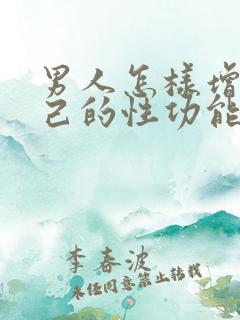 男人怎样增
己的性功能
李春波
未经同意禁止转载